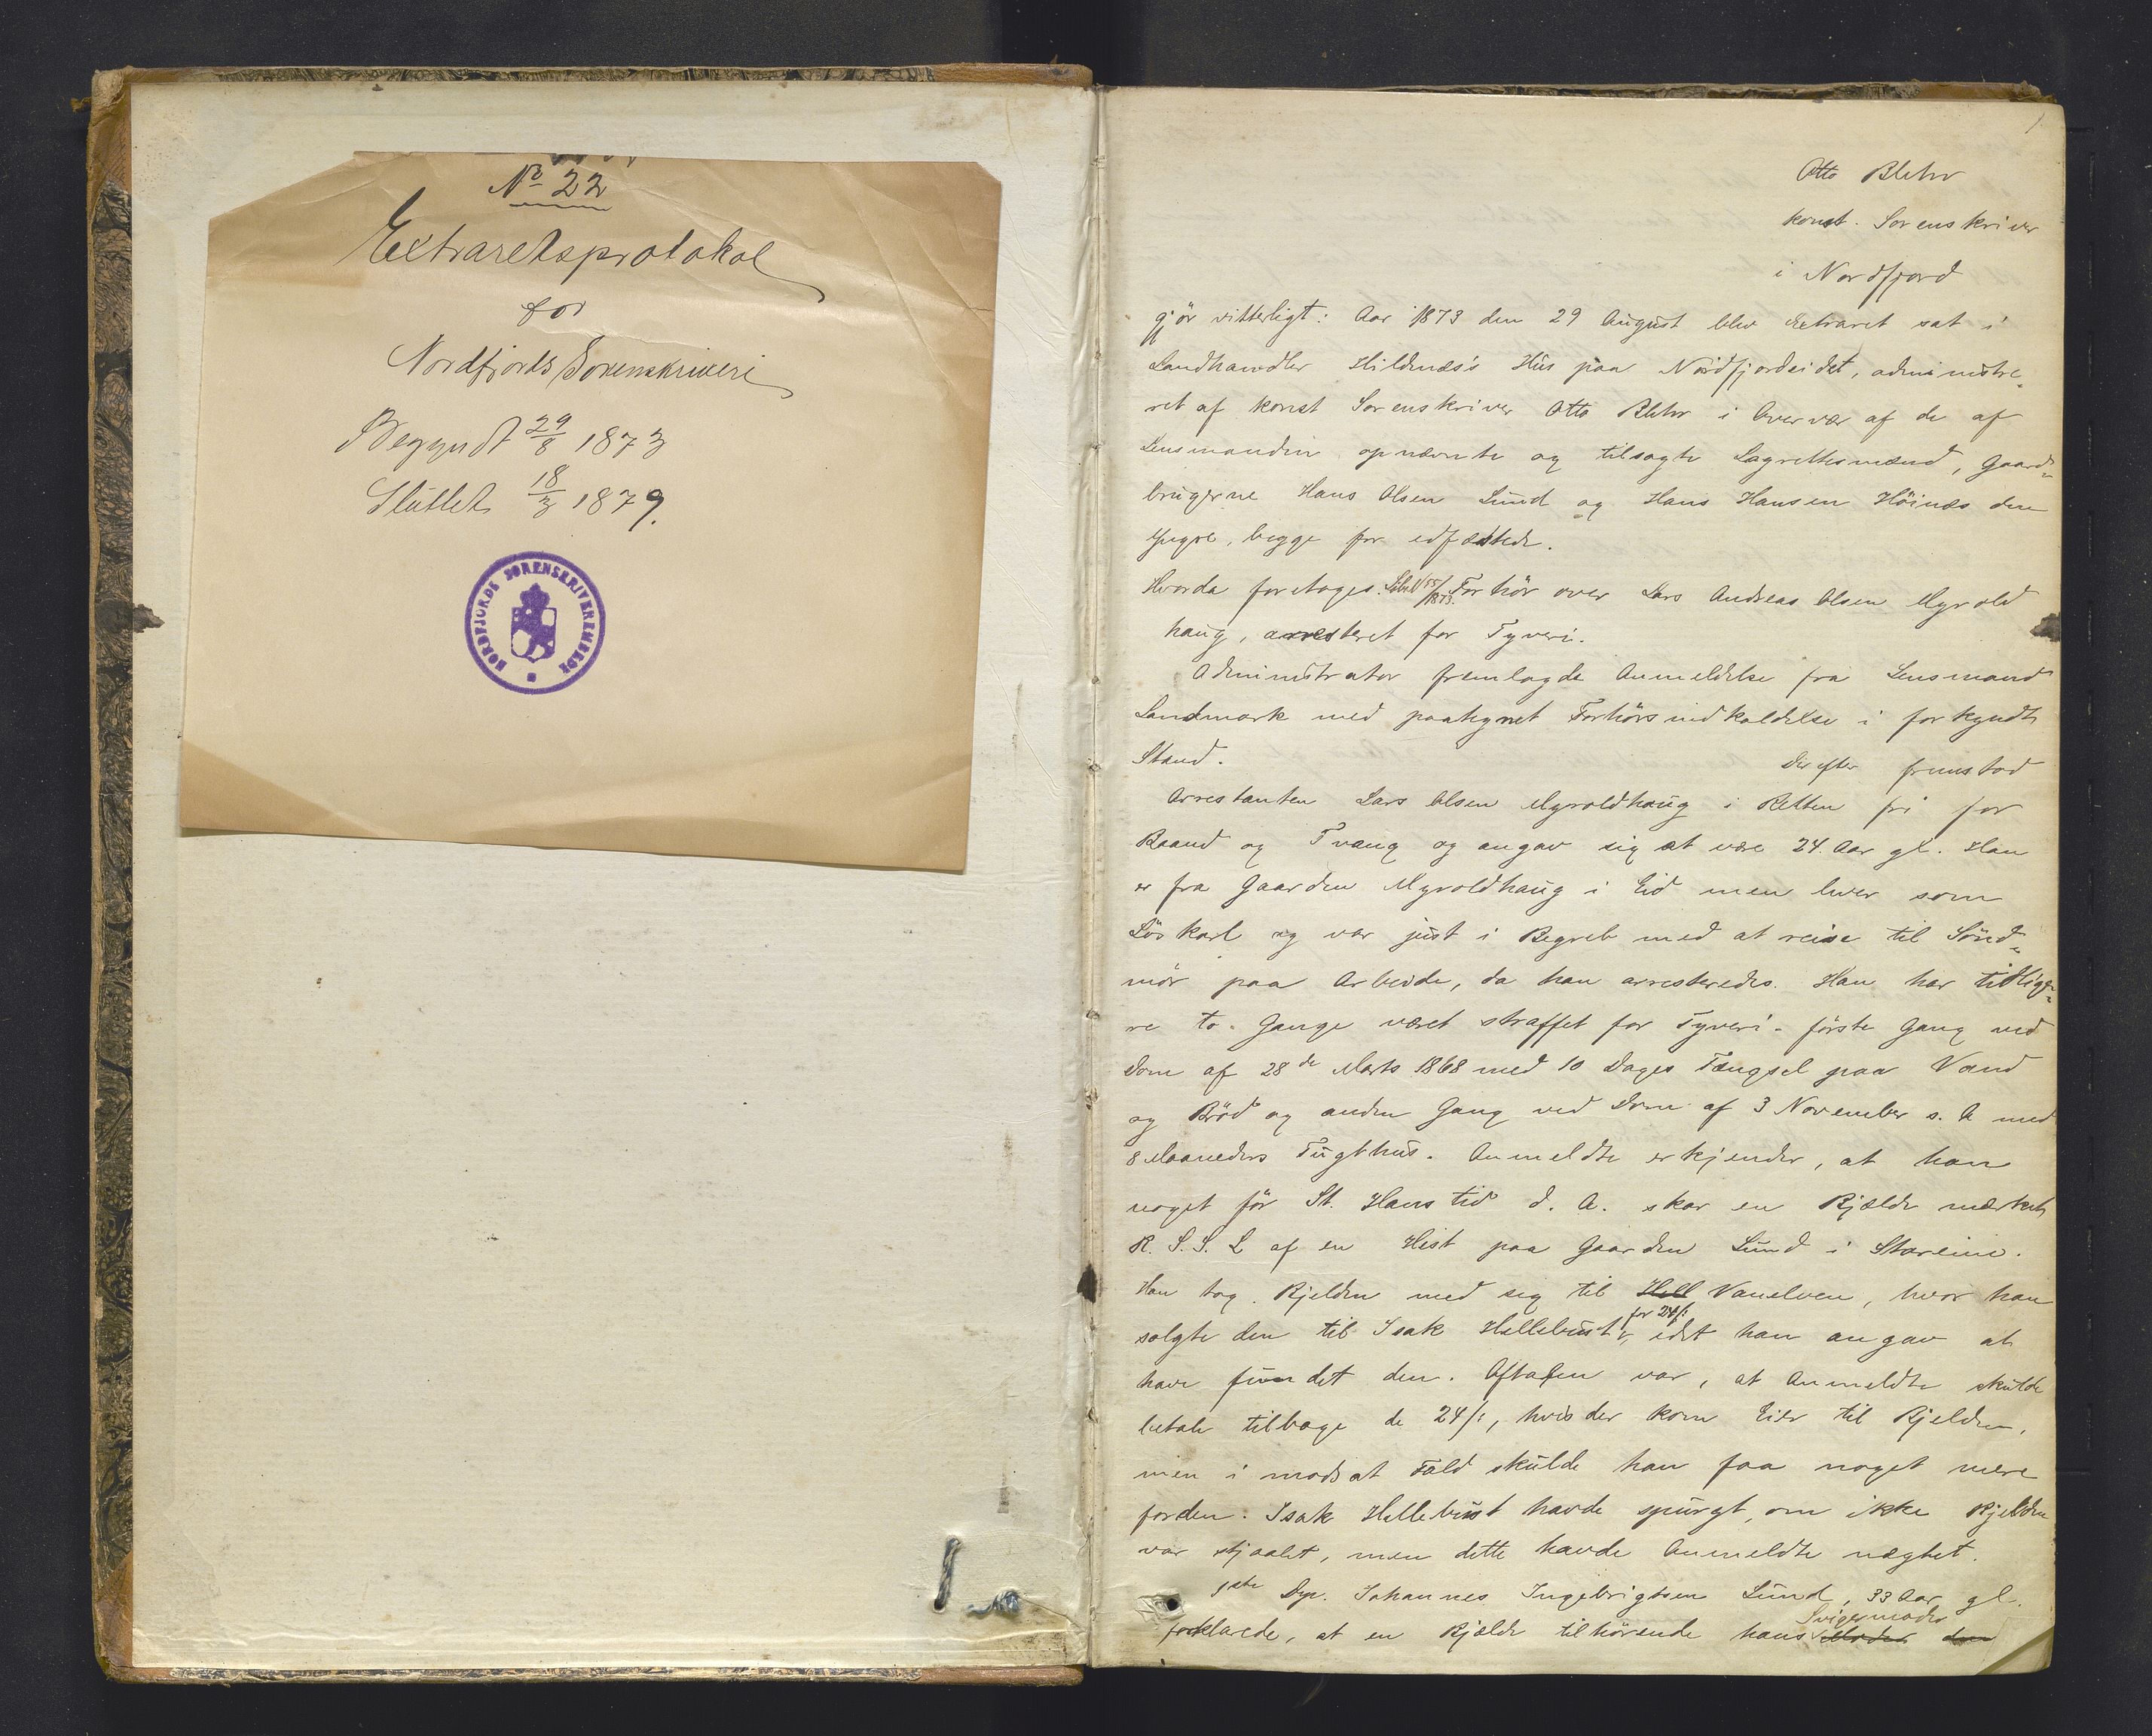 No 22
Extraretsprotokol
for
Nordfjords Sorenskriveri
Begyndt 29/8 1873
Sluttet 18/3 1879.
NORDFJORDS SORENSKRIVEREMBEDE
1
Otto Blehr
konst. Sorenskriver
i Nordfjord
gjör vitterligt: Aar 1873 den 29 August blev Extraret sat i
Landhandler Hildenæs's Hus paa Nordfjordeidet, administre-
ret af konst Sorenskriver Otto Blehr i Overvær af de af
Lensmanden opnævnte og tilsagte Lagrettesmænd, Gaard-
brugerne Hans Olsen Lund og Hans Hansen Höinæs den
yngre, begge for edfæstede.
Hvorda foretoges Forhör over Lars Andreas Olsen Myrold
haug, arresteret for Tyveri.
Administrator fremlagde Anmeldelse fra Lensmand
Landmark med paategnet Forhörsindkaldelse i forkyndt
Stand.
Derefter fremstod
Arrestanten Lars Olsen Myroldhaug i Retten fri for
Baand og Tvang og angav sig at være 24 Aar gl. Han
er fra Gaarden Myroldhaug i Eid men lever som
Löskarl og var just i Begreb med at reise til Sönd-
mör paa Arbeide, da han arresteredes. Han har tidlige-
re to Gange været straffet for Tyveri. förste Gang ved
Dom af 28de Marts 1868 med 10 Dages Fængsel paa Vand
og Bröd og anden Gang ved Dom af 3 November s. A med
8 Maaneders Tugthus. Anmeldte erkjender, at han
noget för St. Hans tid d. A. skar en Bjælde mærket
R. S. S. L af en Hest paa Gaarden Lund i Stareim.
Han tog Bjelden med sig til Hell Vanelven, hvor han
solgte den til Isak Hellebust for 24 /:, idet han angav at
have fundet den. Aftalen var, at Anmeldte skulde
betale tilbage de 24 /:, hvis der kom Eier til Bjelden,
men i modsat Fald skulde han faa noget mere
for den. Isak Hellebust havde spurgt, om ikke Bjelden
var stjaalet, men dette havde Anmeldte nægtet.
1ste Dep. Johannes Ingebrigtsen Lund, 33 Aar gl.
forklarede, at en Bjælde tilhörende hans Svigermoder Moder den